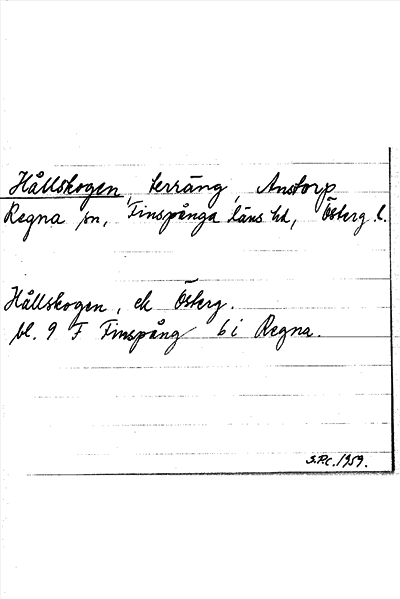 Hållskogen, terräng, Anstorp
Regna sn, Finspånga läns hd, Österg. l.
Hållskogen, ek Österg.
bl. 9 F Finspång 6 i Regna.
S.P.C. 1959.